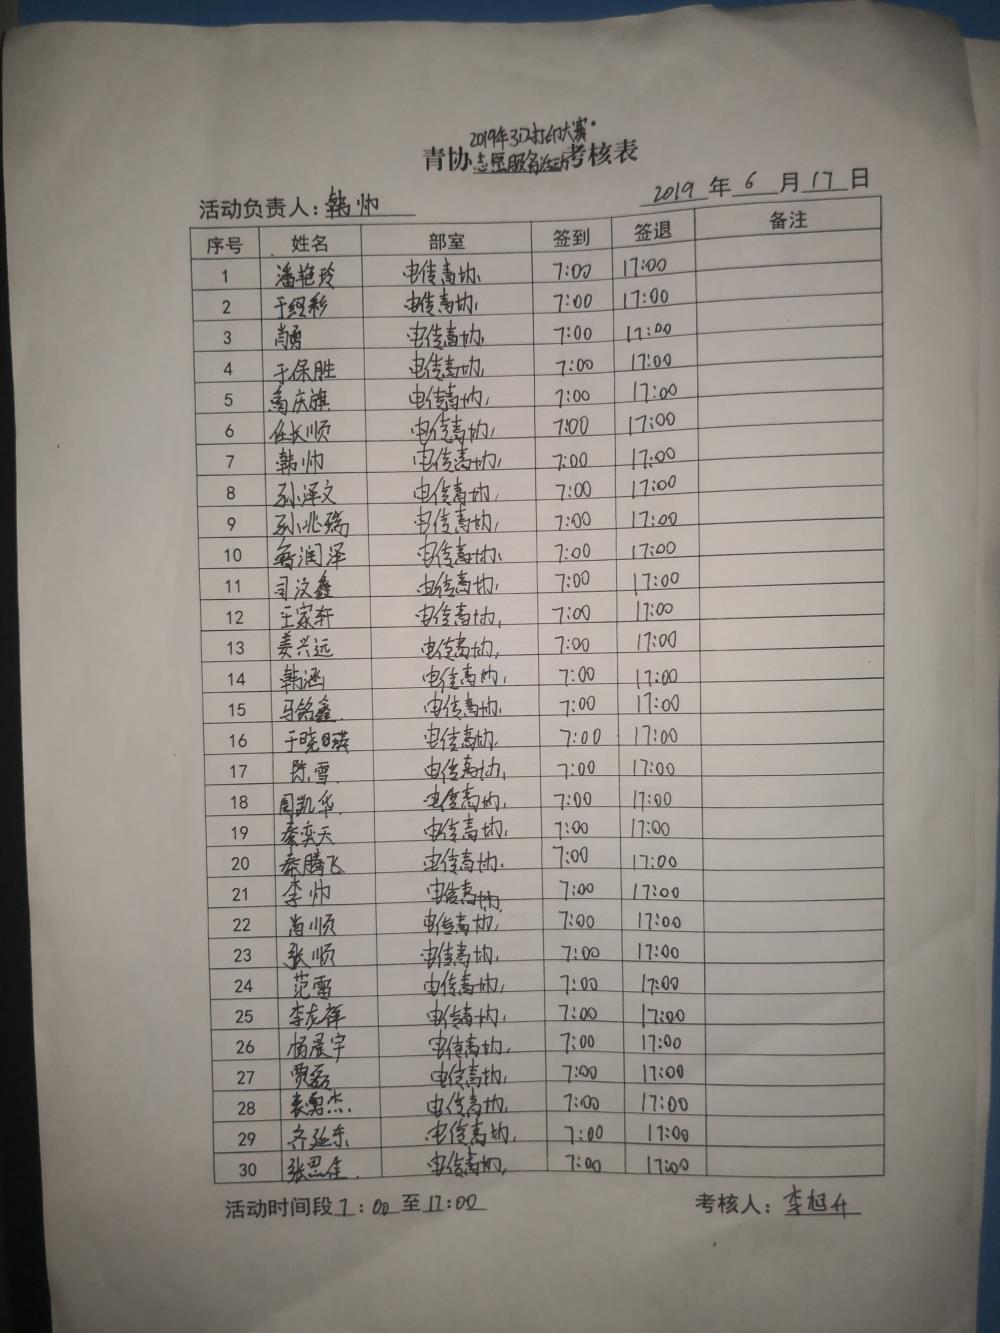 2019年3D打印大赛
青协志愿服务活动考核表
活动负责人：韩帅 2019年6月17日
序号 姓名 部室 签到 签退 备注
1 潘艳玲 电信青协 7:00 17:00
2 电信青协 7:00 17:00
3 肖勇 电信青协 7:00 17:00
4 于保胜 电信青协 7:00 17:00
5 高庆旗 电信青协 7:00 17:00
6 任长顺 电信青协 7:00 17:00
7 韩帅 电信青协 7:00 17:00
8 孙泽文 电信青协 7:00 17:00
9 孙兆瑞 电信青协 7:00 17:00
10 电信青协 7:00 17:00
11 司汶鑫 电信青协 7:00 17:00
12 王家轩 电信青协 7:00 17:00
13 姜兴远 电信青协 7:00 17:00
14 韩涵 电信青协 7:00 17:00
15 马铭鑫 电信青协 7:00 17:00
16 于晓瑛 电信青协 7:00 17:00
17 陈雪 电信青协 7:00 17:00
18 周凯华 电信青协 7:00 17:00
19 秦奕天 电信青协 7:00 17:00
20 秦腾飞 电信青协 7:00 17:00
21 李帅 电信青协 7:00 17:00
22 肖顺 电信青协 7:00 17:00
23 张顺 电信青协 7:00 17:00
24 范雷 电信青协 7:00 17:00
25 李龙祥 电信青协 7:00 17:00
26 杨晨宇 电信青协 7:00 17:00
27 贾磊 电信青协 7:00 17:00
28 袁勇杰 电信青协 7:00 17:00
29 齐延东 电信青协 7:00 17:00
30 张思佳 电信青协 7:00 17:00
活动时间段7:00至17:00 考核人：李旭升